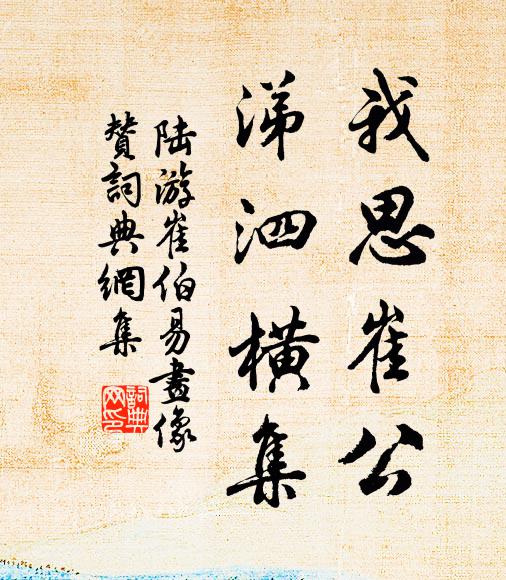 我思崔公
涕泗橫集
陆游崔伯易畫像
贊詞典網集
詞典
网印